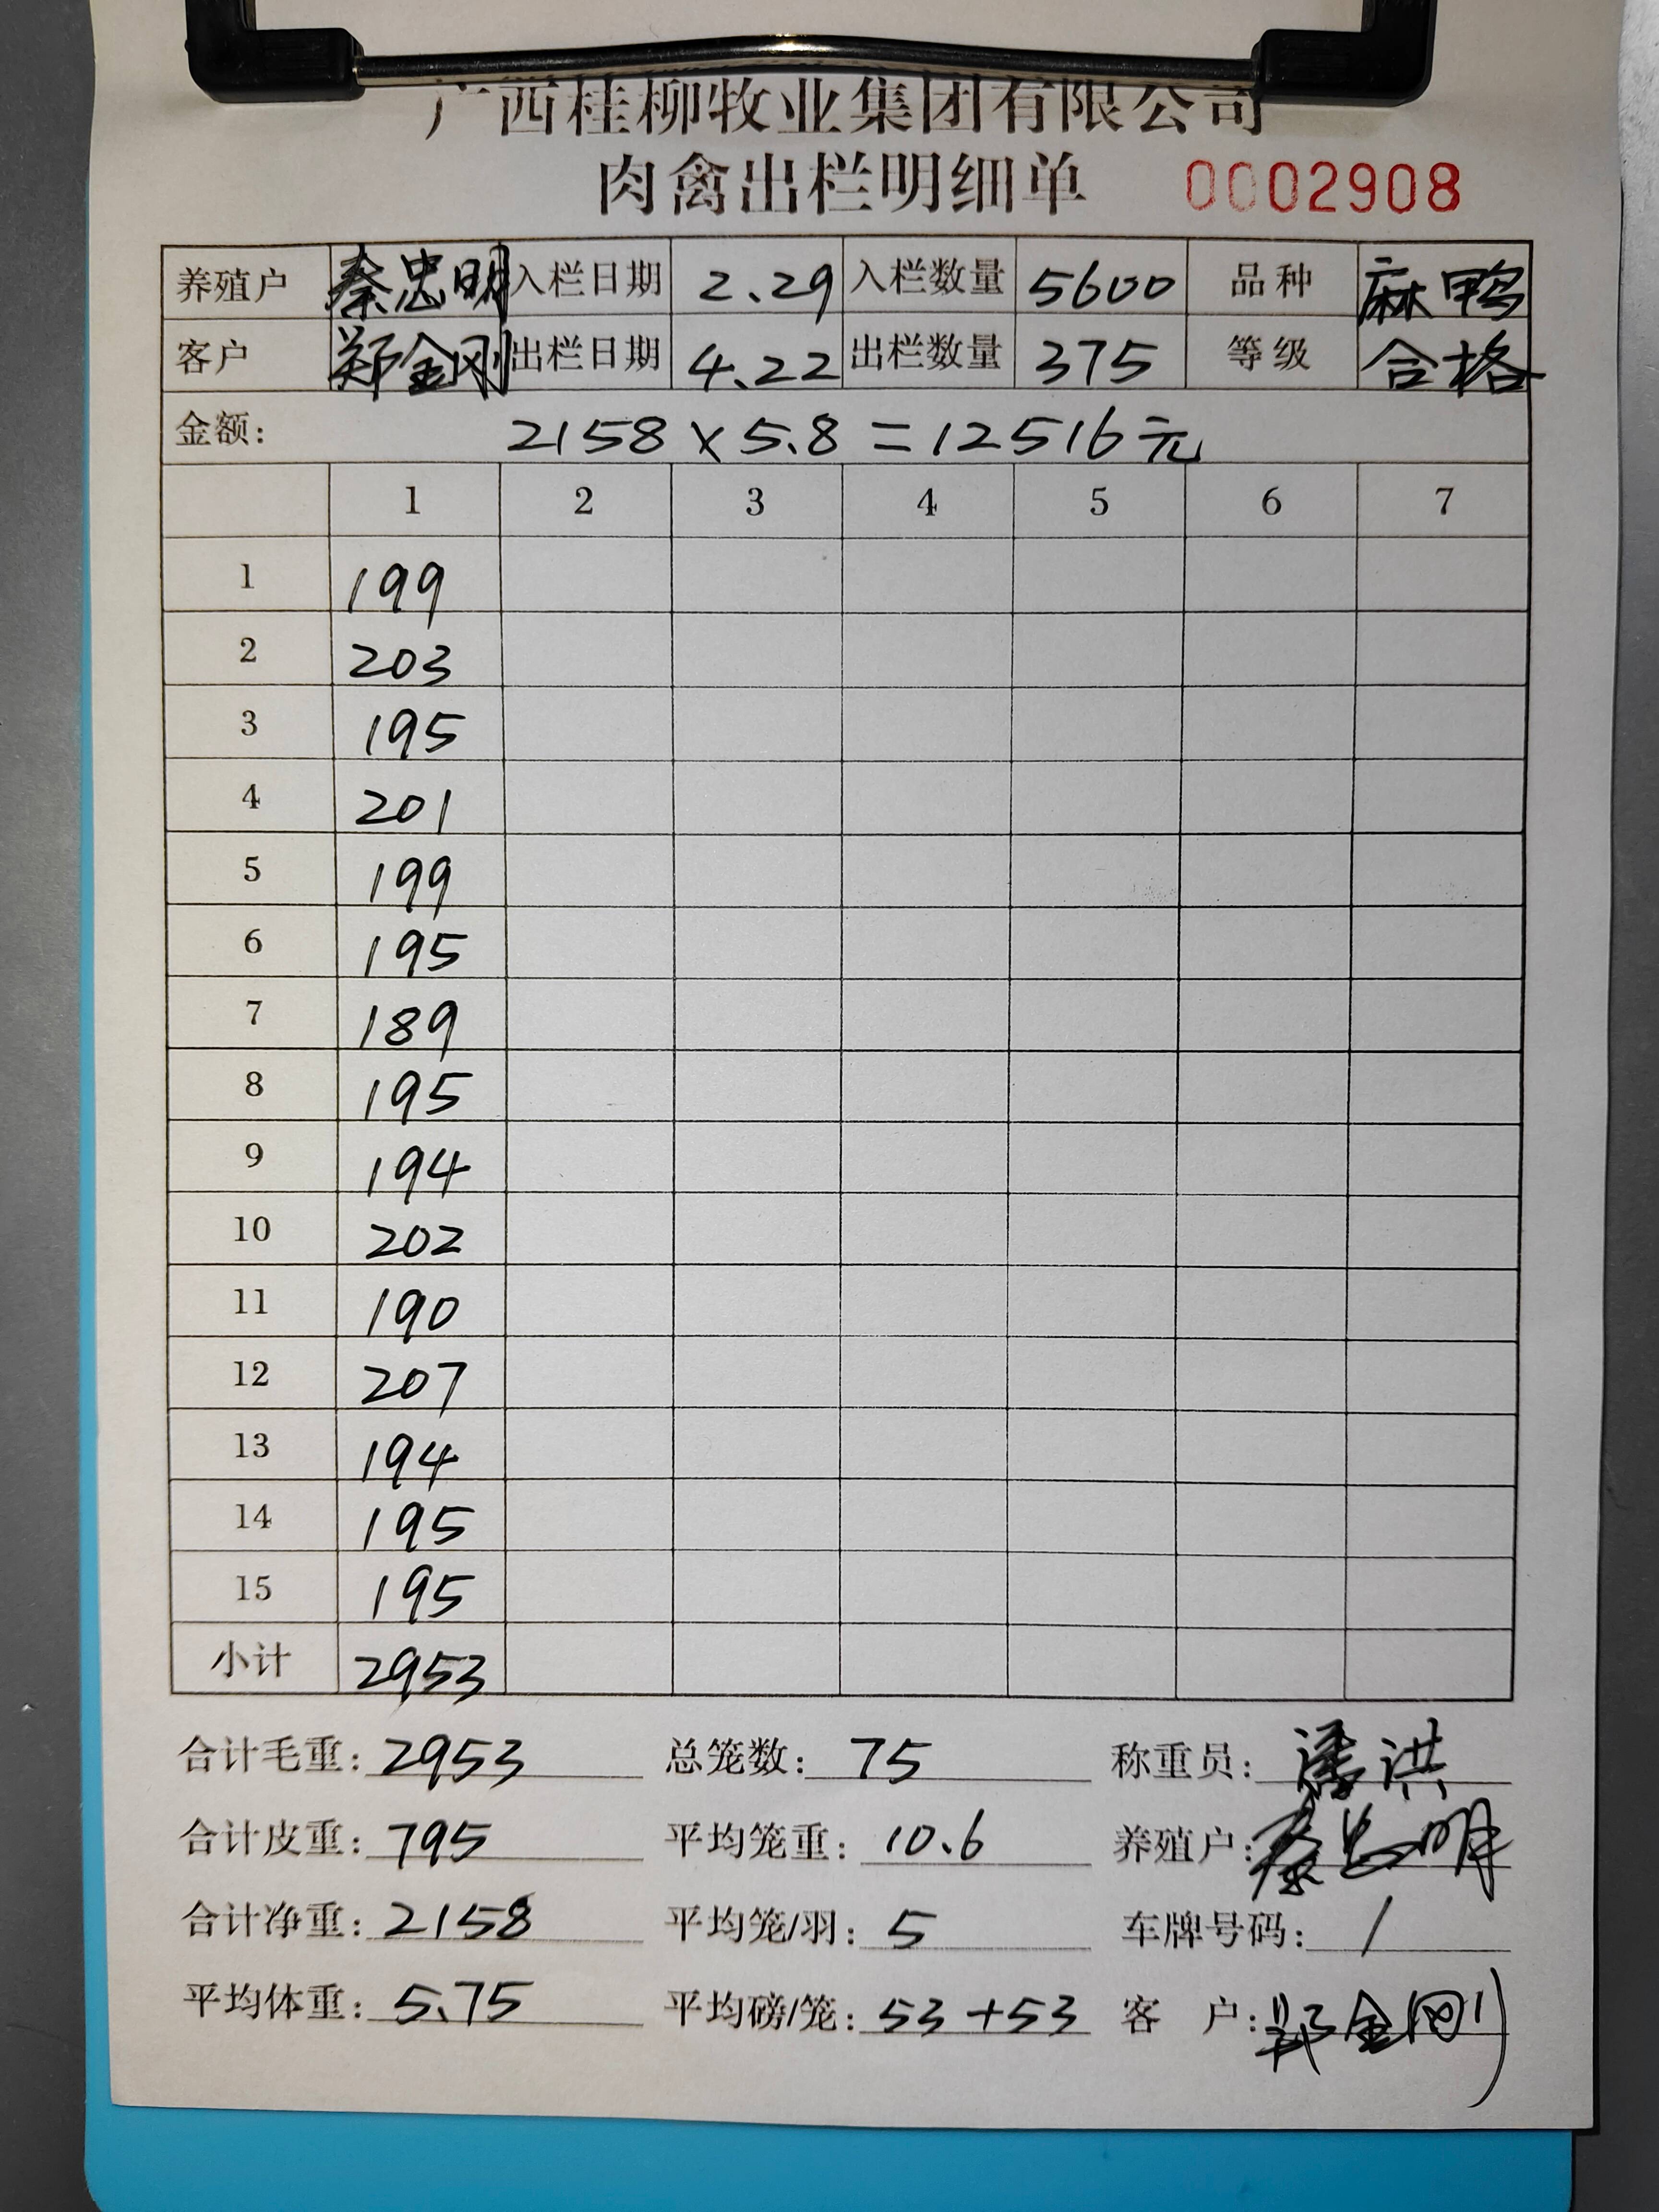 广西桂柳牧业集团有限公司
肉禽出栏明细单 0002908
养殖户 秦忠明 入栏日期 2.29 入栏数量 5600 品种 麻鸭
客户 郑金刚 出栏日期 4.22 出栏数量 375 等级 合格
金额: 2158×5.8=12516元
1 2 3 4 5 6 7
1 199
2 203
3 195
4 201
5 199
6 195
7 189
8 195
9 194
10 202
11 190
12 207
13 194
14 195
15 195
小计 2953
合计毛重: 2953 总笼数: 75 称重员: 潘洪
合计皮重: 795 平均笼重: 10.6 养殖户: 秦忠明
合计净重: 2158 平均笼/羽: 5 车牌号码: /
平均体重: 5.75 平均磅/笼: 53+53 客户: 郑金刚